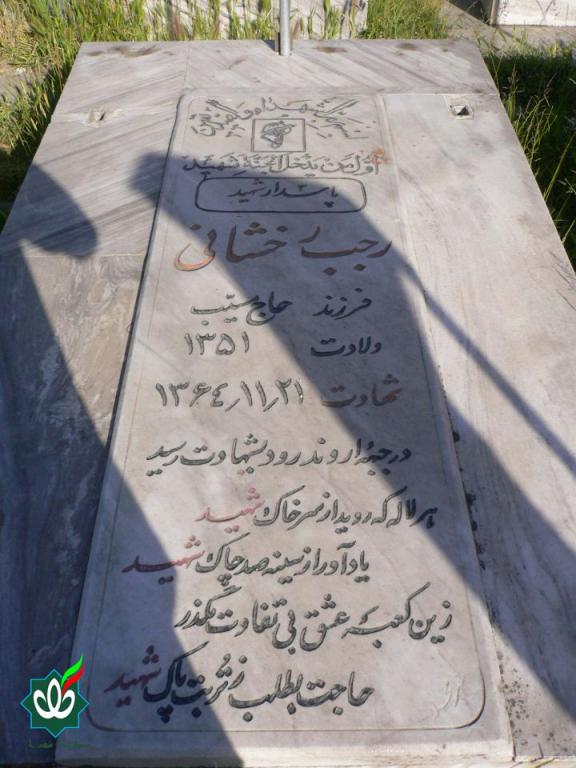 اول من یدخل الجنة شهید
پاسدار شهید
رجب رخشانی
فرزند حاج سیب
ولادت ۱۳۵۱
شهادت ۱۳۶۴٫۱۱٫۲۱
در جبهه اروندرود بشهادت رسید
هر لاله که روید از سر خاک شهید
یادآور از سینه صد چاک شهید
زین کعبه عشق بی تفاوت مگذر
حاجت بطلب ز تربت پاک شهید